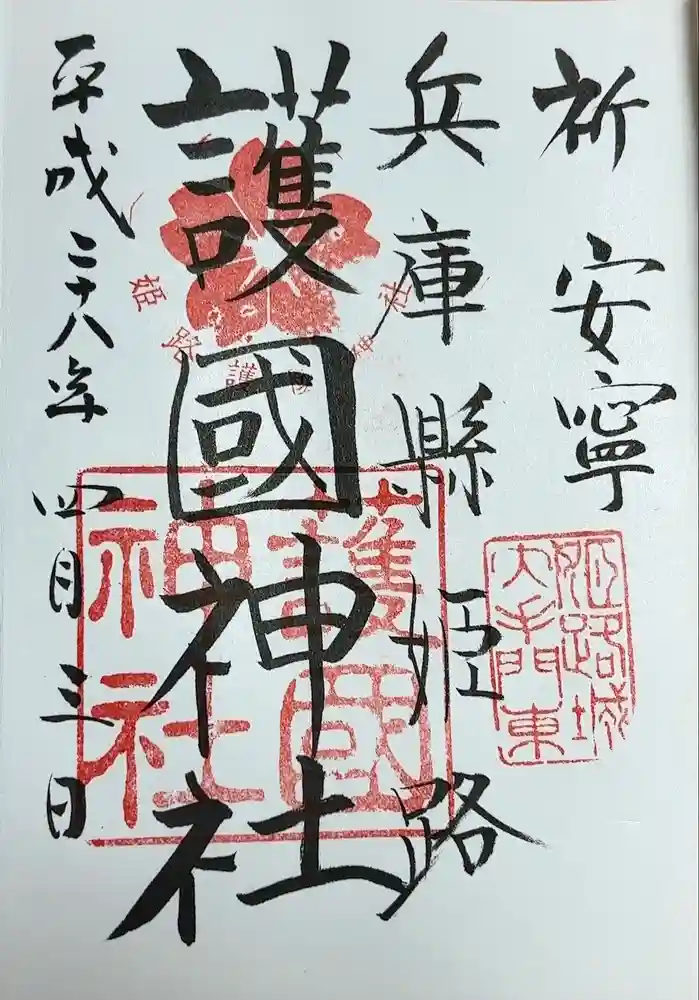 祈安寧
兵庫縣姫路
護國神社
平成二十八年四月三日
姫路護國神社
護國神社
姫路城大手門東